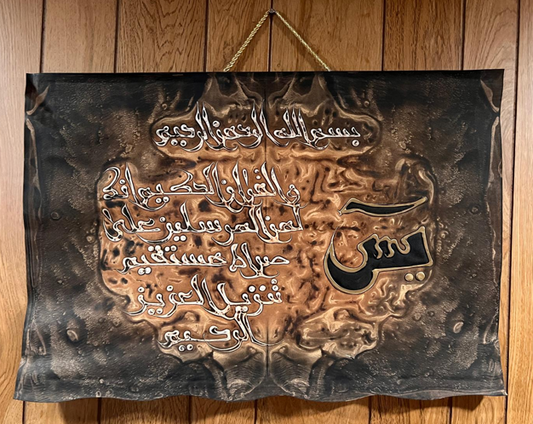 بسم الله الرحمن الرحيم
يسٓ
والقرآن الحكيم إنك
لمن المرسلين على
صراط مستقيم
تنزيل العزيز
الرحيم